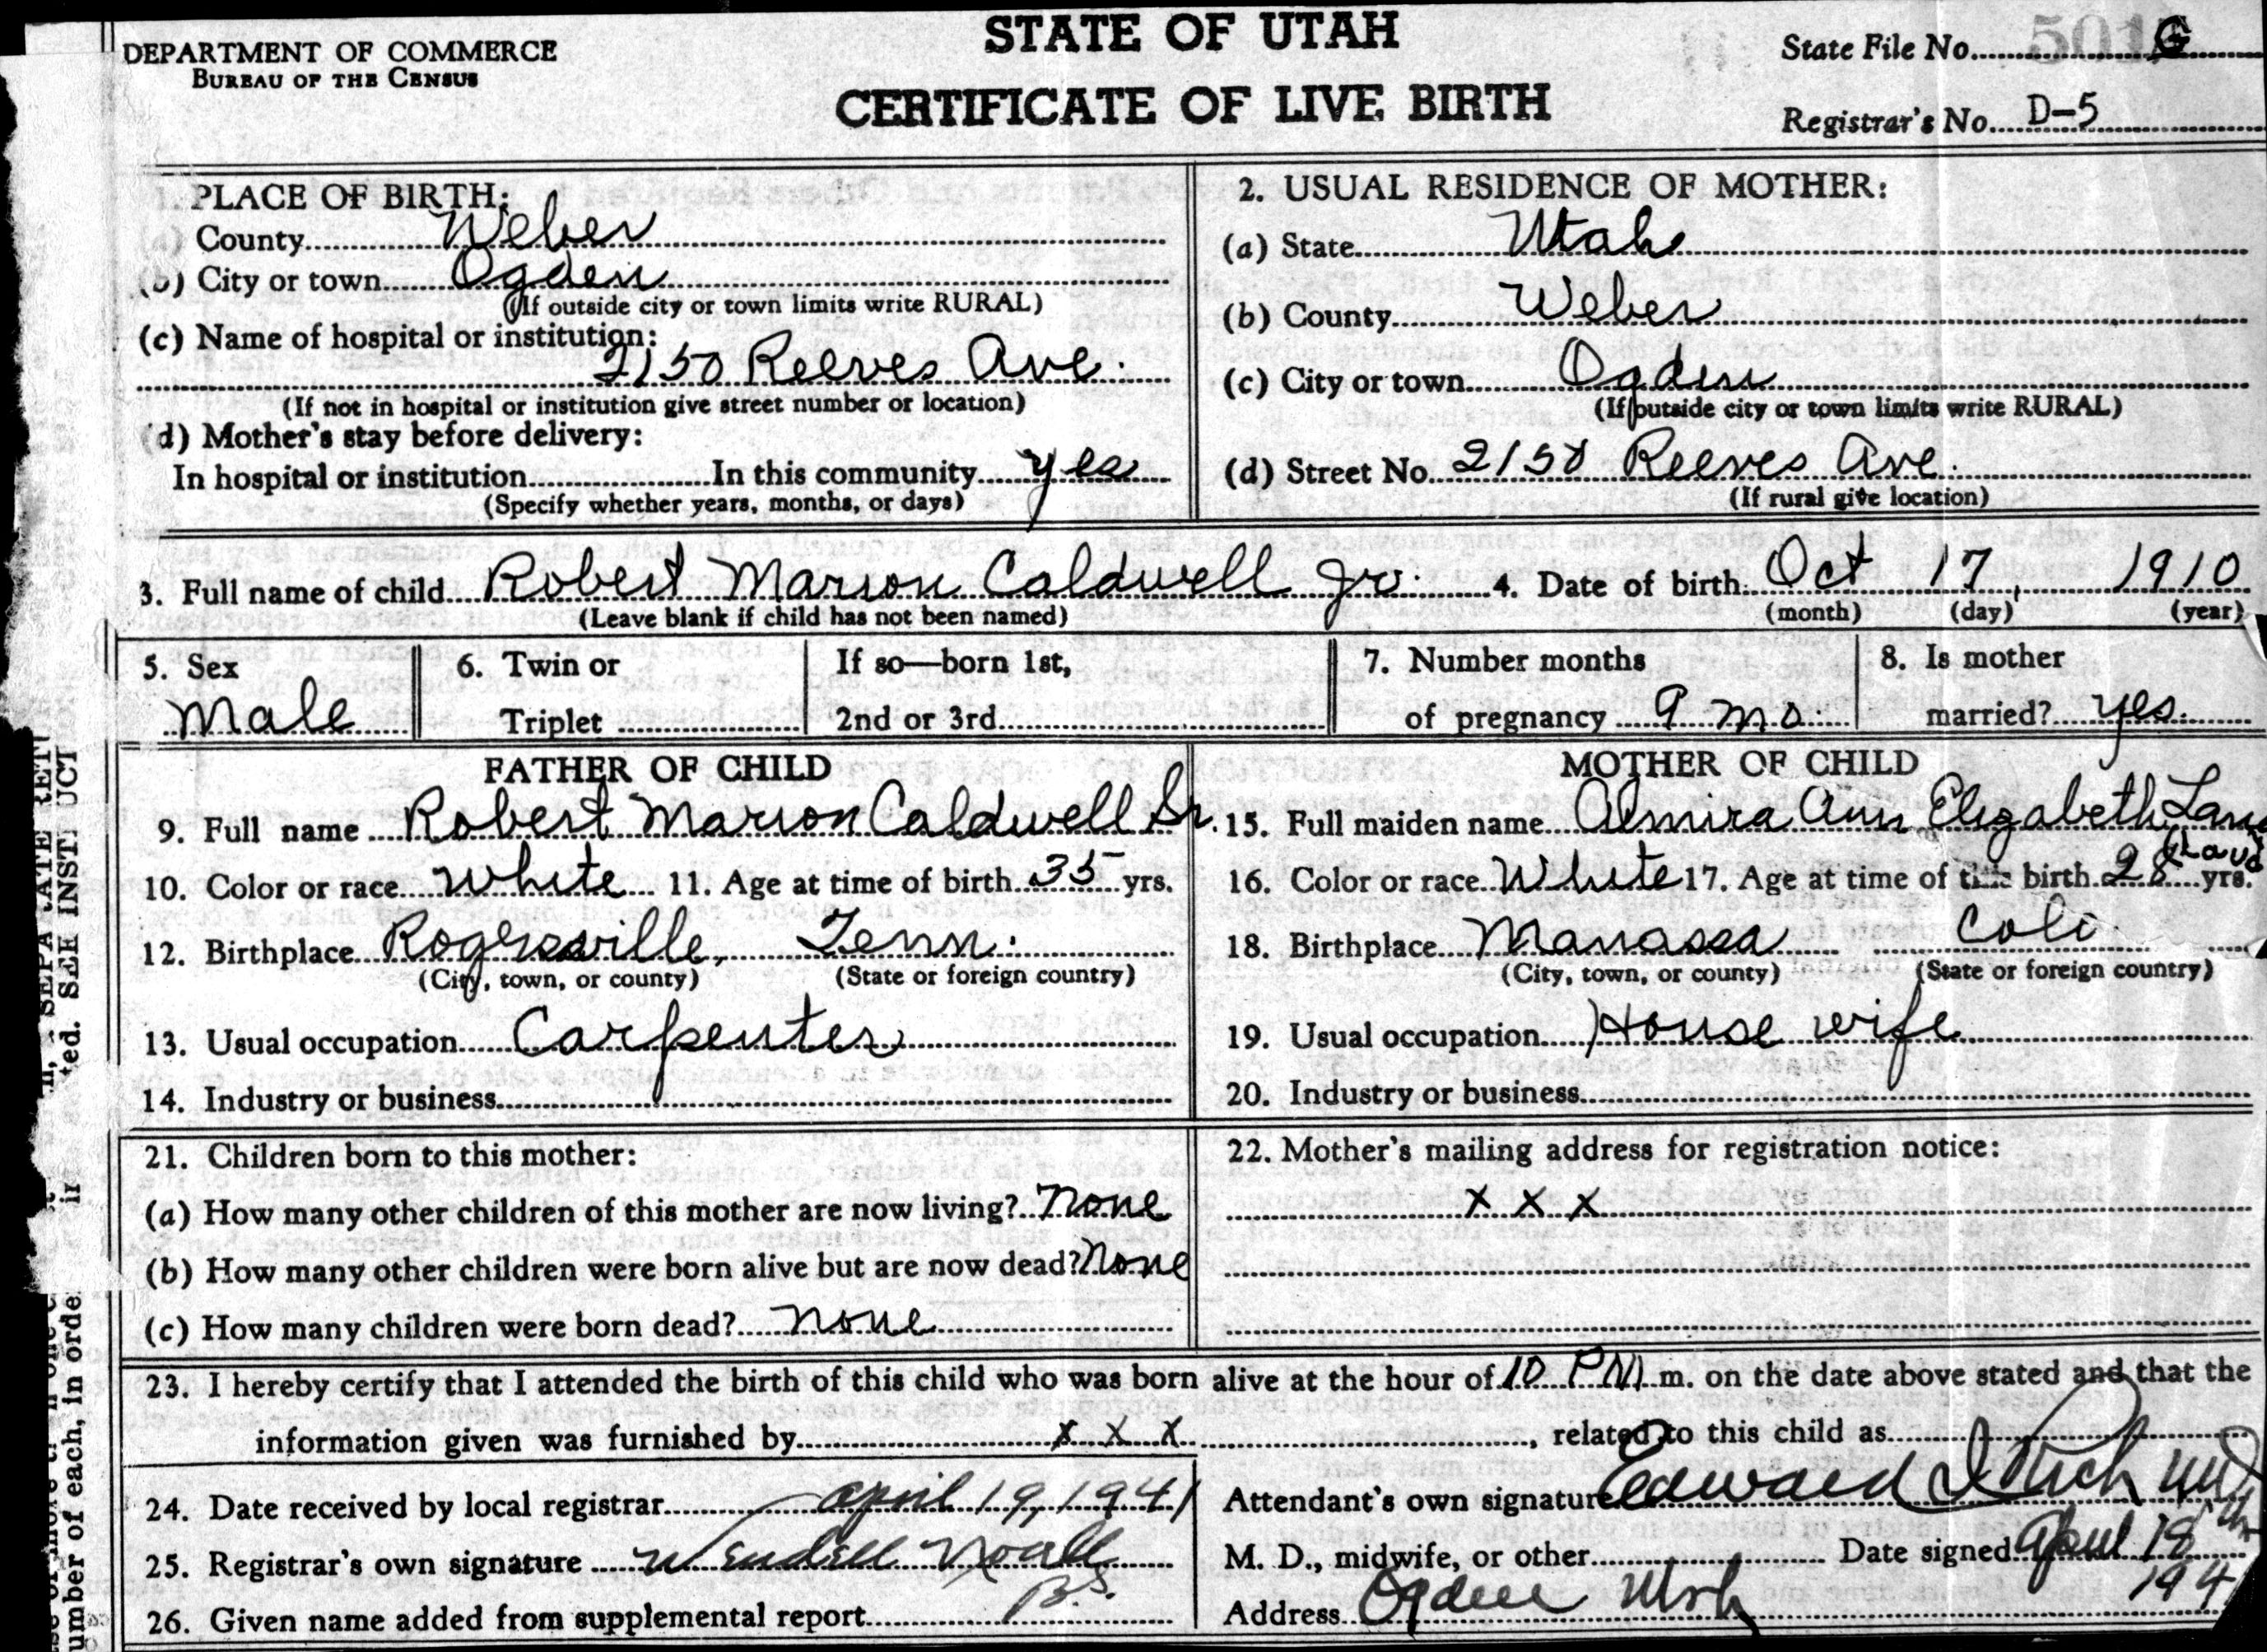 DEPARTMENT OF COMMERCE
BUREAU OF THE CENSUS
STATE OF UTAH
CERTIFICATE OF LIVE BIRTH
State File No. 501 G
Registrar's No. D-5
1. PLACE OF BIRTH:
(a) County Weber
(b) City or town Ogden
(If outside city or town limits write RURAL)
(c) Name of hospital or institution:
2150 Reeves Ave.
(If not in hospital or institution give street number or location)
(d) Mother's stay before delivery:
In hospital or institution In this community yes
(Specify whether years, months, or days)
2. USUAL RESIDENCE OF MOTHER:
(a) State Utah
(b) County Weber
(c) City or town Ogden
(If outside city or town limits write RURAL)
(d) Street No. 2150 Reeves Ave.
(If rural give location)
3. Full name of child Robert Marion Caldwell Jr. 4. Date of birth Oct 17, 1910
(Leave blank if child has not been named) (month) (day) (year)
5. Sex Male
6. Twin or
Triplet
If so—born 1st,
2nd or 3rd
7. Number months
of pregnancy 9 mo
8. Is mother
married? yes
FATHER OF CHILD
9. Full name Robert Marion Caldwell Sr.
10. Color or race White 11. Age at time of birth 35 yrs.
12. Birthplace Rogersville, Tenn.
(City, town, or county) (State or foreign country)
13. Usual occupation Carpenter
14. Industry or business
MOTHER OF CHILD
15. Full maiden name Almira Ann Elizabeth
16. Color or race White 17. Age at time of this birth 28 yrs.
18. Birthplace Manassa Colo.
(City, town, or county) (State or foreign country)
19. Usual occupation House wife
20. Industry or business
21. Children born to this mother:
(a) How many other children of this mother are now living? None
(b) How many other children were born alive but are now dead? None
(c) How many children were born dead? None
22. Mother's mailing address for registration notice:
x x x
23. I hereby certify that I attended the birth of this child who was born alive at the hour of 10 PM m. on the date above stated and that the
information given was furnished by x x x, related to this child as
24. Date received by local registrar April 19, 1941
25. Registrar's own signature Wendell Noall
B.S.
26. Given name added from supplemental report
Attendant's own signature Edward I Rich MD
M. D., midwife, or other Date signed April 18th
194
Address Ogden Utah